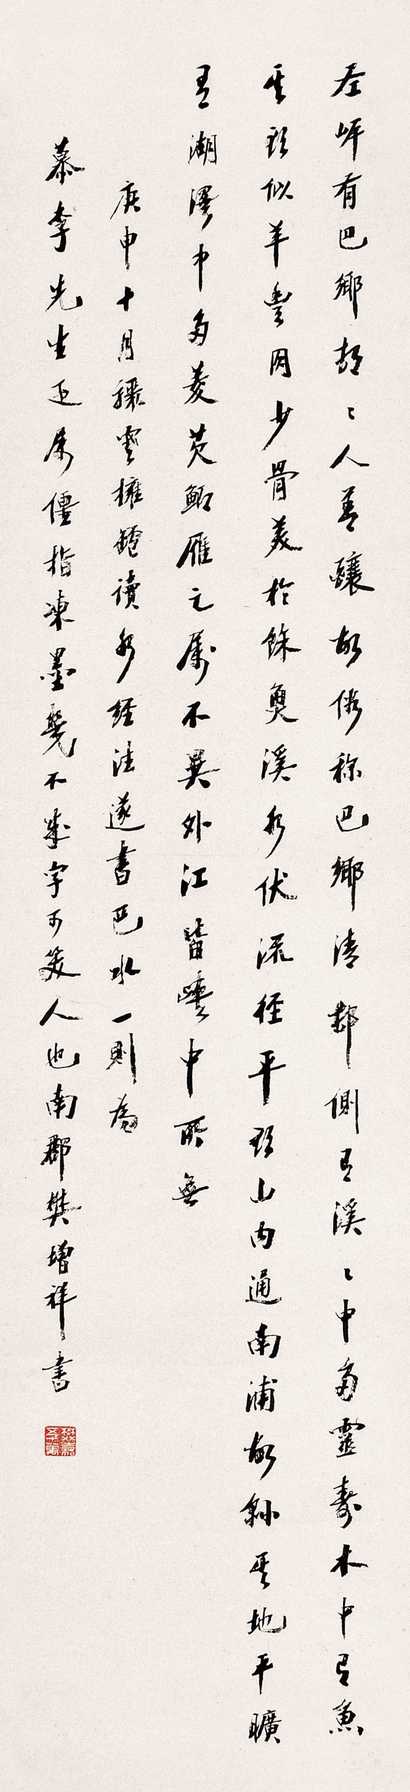 左岸有巴鄉村〻人善釀故俗稱巴鄉清郡側有溪〻中多靈壽木中有魚
其頭似羊豐肉少骨美於餘魚溪水伏流徑平頭山內通南浦故縣其地平曠
有湖澤中多菱芡鯽雁之屬不異外江皆峽中所無
庚申十月雪擁鑪讀水經注遂書巴水一則為
慕李先生正屬僵指凍墨幾不成字可笑人也南郡樊增祥書